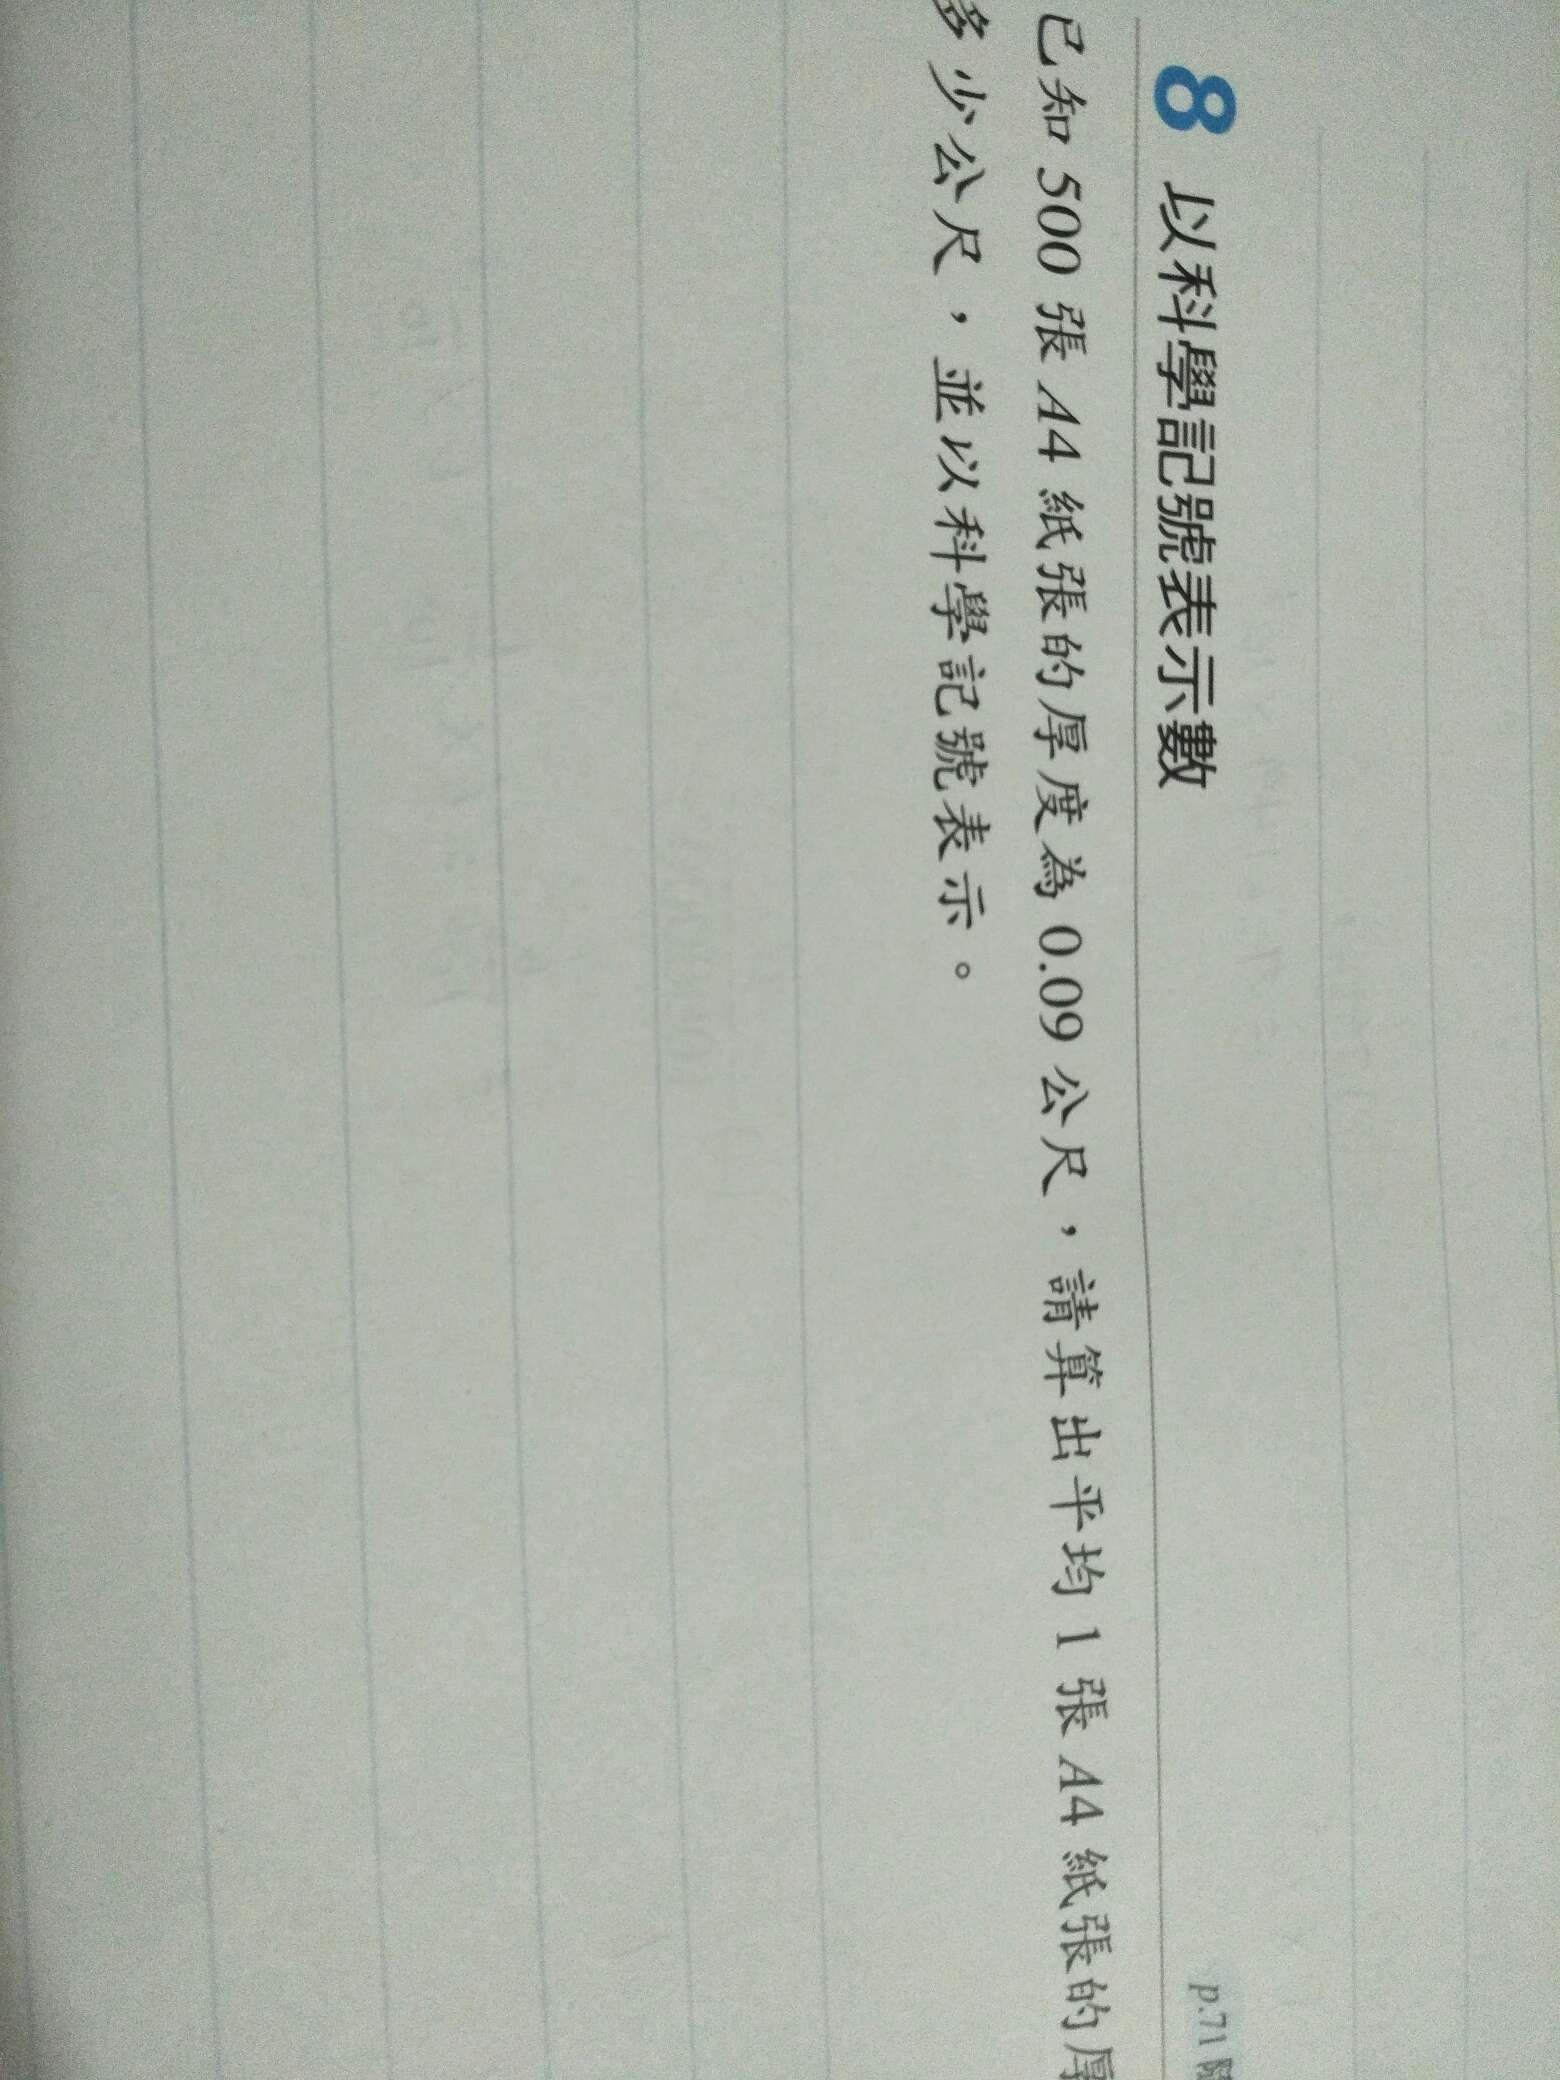 8 以科學記號表示數
p.71
已知 500 張 A4 紙張的厚度為 0.09 公尺，請算出平均 1 張 A4 紙張的厚
多少公尺，並以科學記號表示。